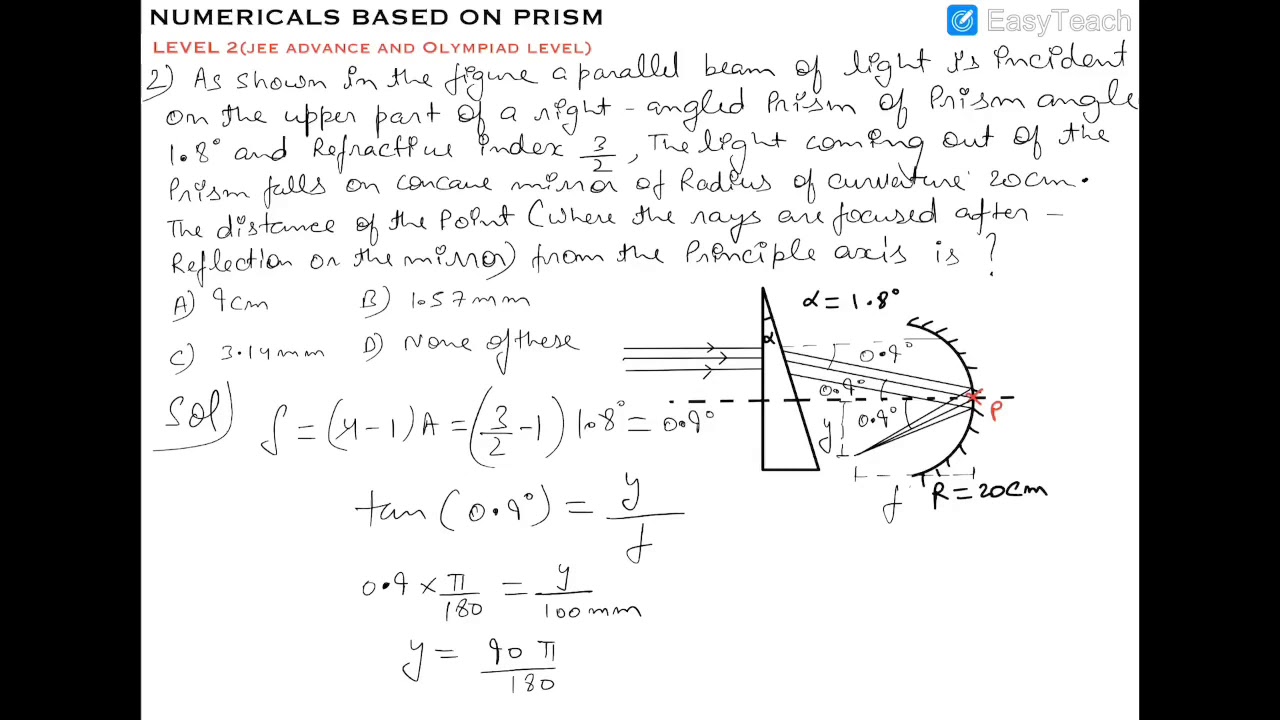 NUMERICALS BASED ON PRISM
EasyTeach
LEVEL 2(JEE ADVANCE AND OLYMPIAD LEVEL)
2) As shown in the figure a parallel beam of light is incident
on the upper part of a right-angled Prism of Prism angle
1.8° and Refractive index 3/2, The light coming out of the
Prism falls on concave mirror of Radius of curvature 20cm.
The distance of the Point (where the rays are focused after -
Reflection on the mirror) from the Principle axis is ?
A) 9cm B) 1.57mm
C) 3.14mm D) None of these
α = 1.8°
α
0.9°
0.9°
0.9°
y
P
f
R = 20cm
Sol)
δ = (μ-1)A = (3/2 -1) 1.8° = 0.9°
tan(0.9°) = y/f
0.9 × π/180 = y/100mm
y = 90π/180